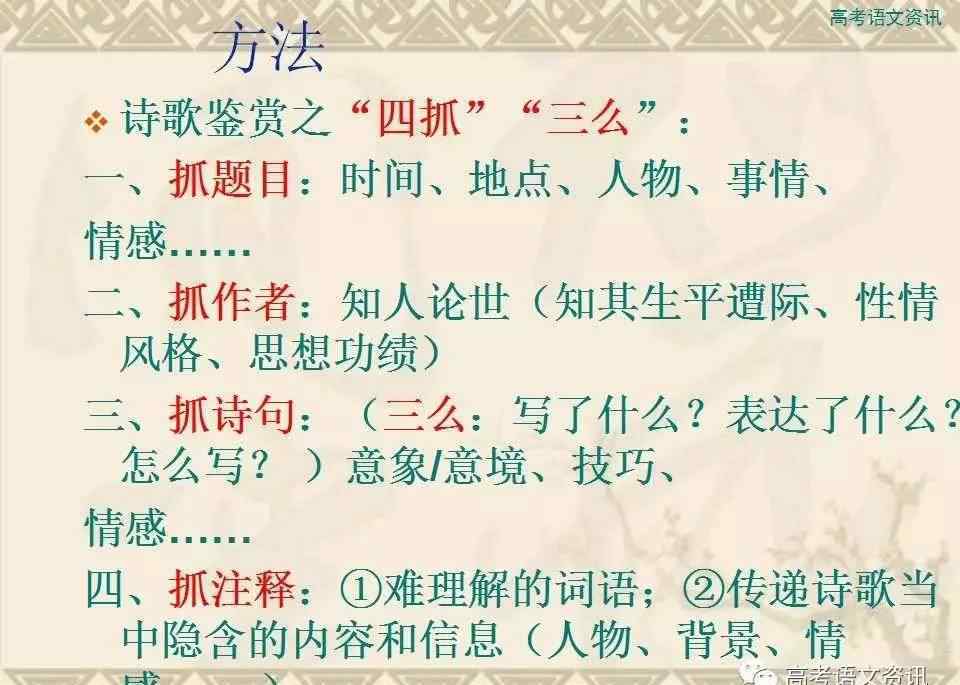 高考语文资讯
方法
诗歌鉴赏之“四抓”“三么”：
一、抓题目：时间、地点、人物、事情、
情感……
二、抓作者：知人论世（知其生平遭际、性情
风格、思想功绩）
三、抓诗句：（三么：写了什么？表达了什么？
怎么写？ ）意象/意境、技巧、
情感……
四、抓注释：①难理解的词语；②传递诗歌当
中隐含的内容和信息（人物、背景、情
高考语文资讯